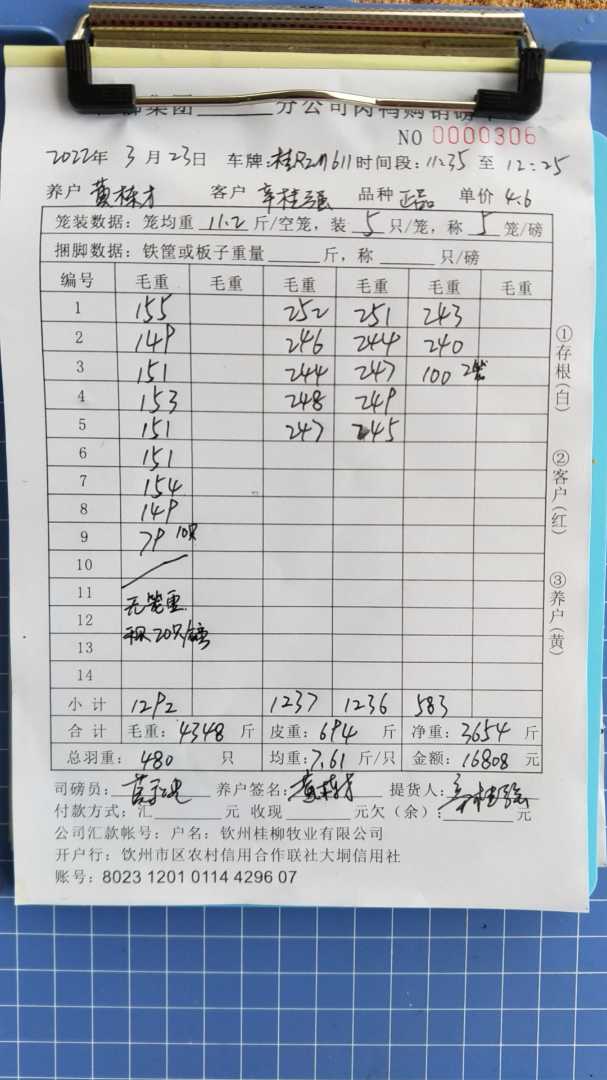 集团 分公司肉鸭购销磅单
NO 0000306
2022年 3月23日 车牌:桂R27611 时间段:11:35 至 12:25
养户 黄栋才 客户 辛桂强 品种 正品 单价 4.6
笼装数据:笼均重 11.2 斤/空笼,装 5 只/笼,称 5 笼/磅
捆脚数据:铁筐或板子重量 斤,称 只/磅
编号 毛重 毛重 毛重 毛重 毛重 毛重
1 155 252 251 243
2 149 246 244 240
3 151 244 247 100 2笼
4 153 248 249
5 151 247 245
6 151
7 154
8 149
9 79 10只
10
11 无笼重
12 称20只/磅
13
14
小计 1292 1237 1236 583
合计 毛重:4348 斤 皮重:694 斤 净重:3654 斤
总羽重:480 只 均重:7.61 斤/只 金额:16808 元
司磅员: 养户签名:黄栋才 提货人:辛桂强
付款方式:汇 元 收现 元欠(余): 元
公司汇款帐号:户名:钦州桂柳牧业有限公司
开户行:钦州市区农村信用合作联社大垌信用社
账号:8023 1201 0114 4296 07
①存根(白)
②客户(红)
③养户(黄)